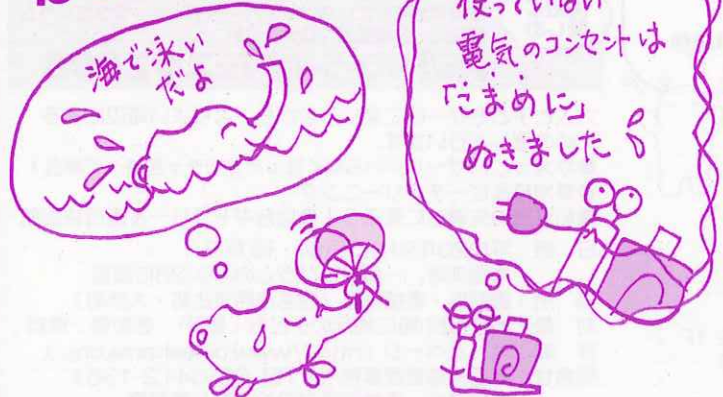 海で泳い
だよ
使っていない
電気のコンセントは
「こまめに」
ぬきました